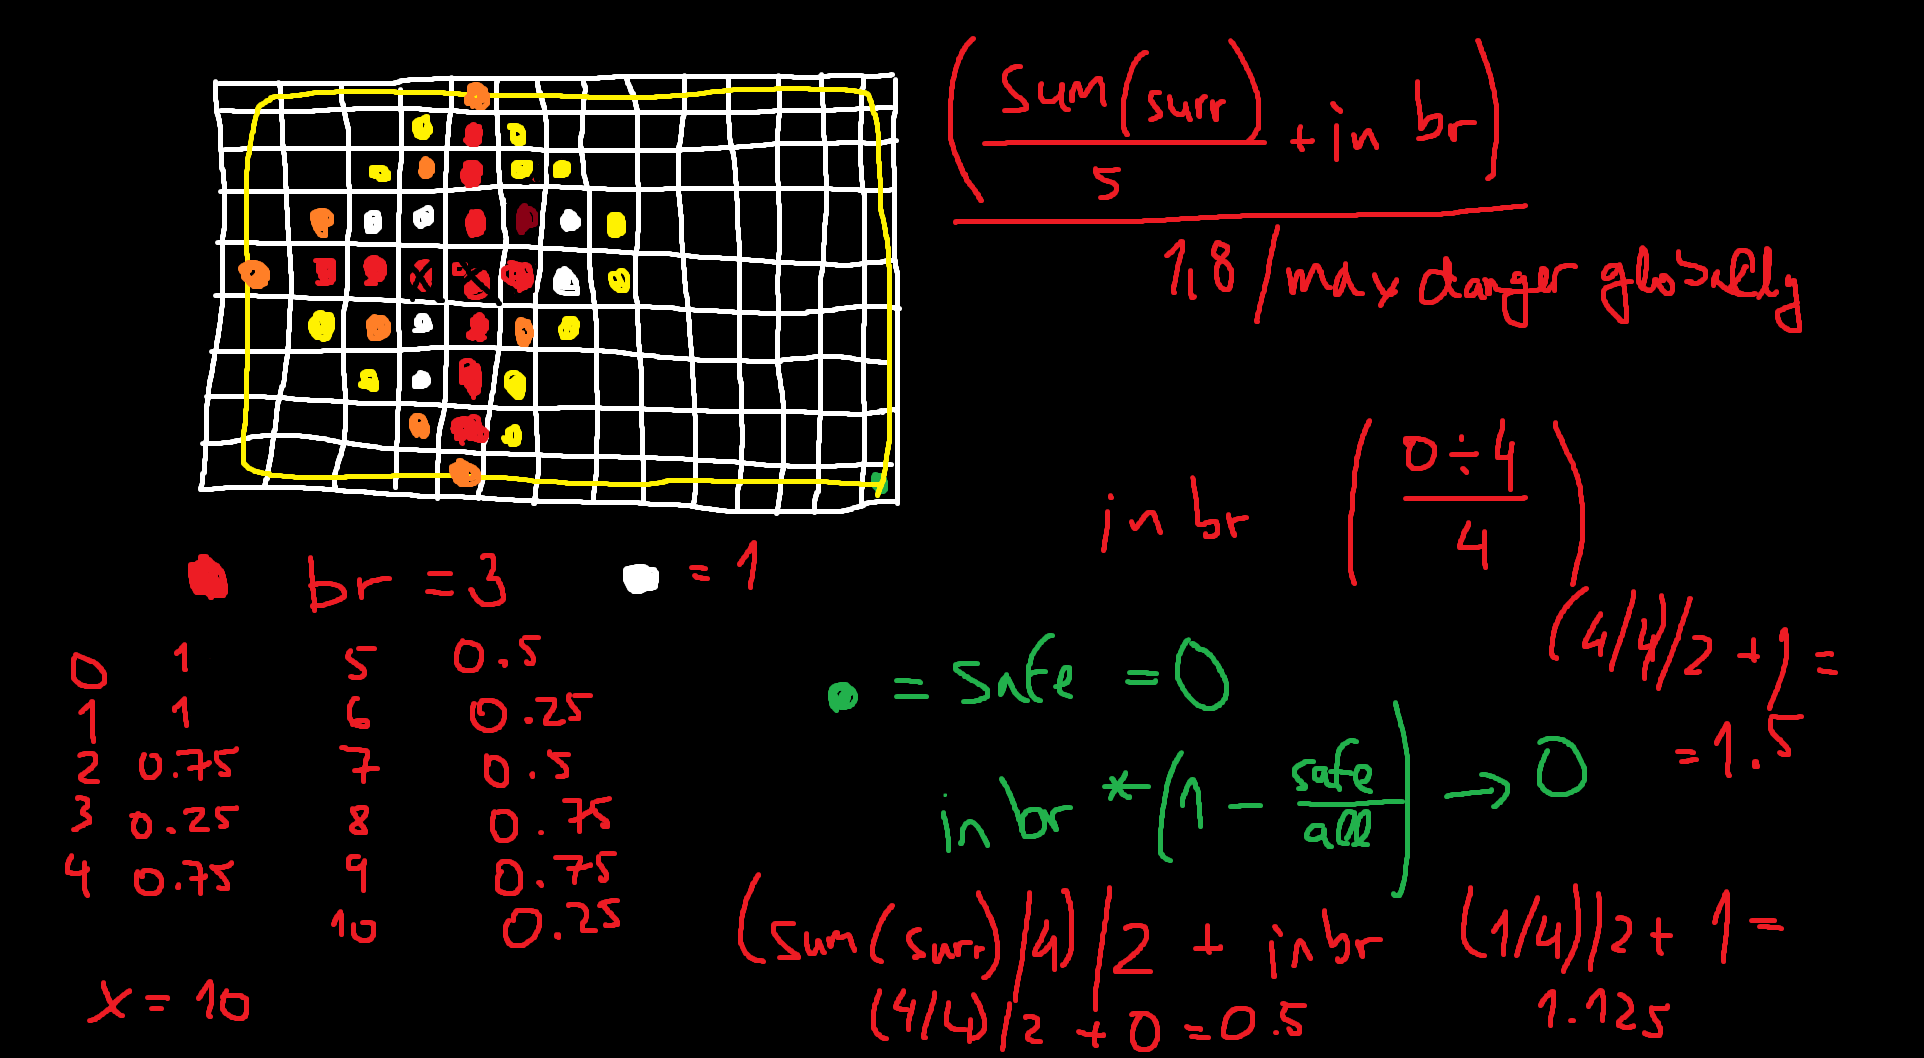 (Sum(surr)/5 + in br)
1,8 / max danger globally
in br (0÷4/4)
br = 3
= 1
(4/4)/2 + 1 =
= 1.5
0 1 5 0.5
1 1 6 0.25
2 0.75 7 0.5
3 0.25 8 0.75
4 0.75 9 0.75
10 0.25
x = 10
= safe = 0
in br * (1 - safe/all) → 0
(sum(surr)/4)/2 + inbr
(4/4)/2 + 0 = 0.5
(1/4)/2 + 1 =
1.125